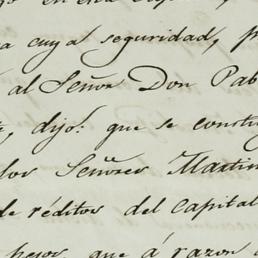 en esta
a cuya seguridad, p
al Señor Don Pab
dijo: que se constit
los Señores Martin
de réditos del Capital
pesos que á razon